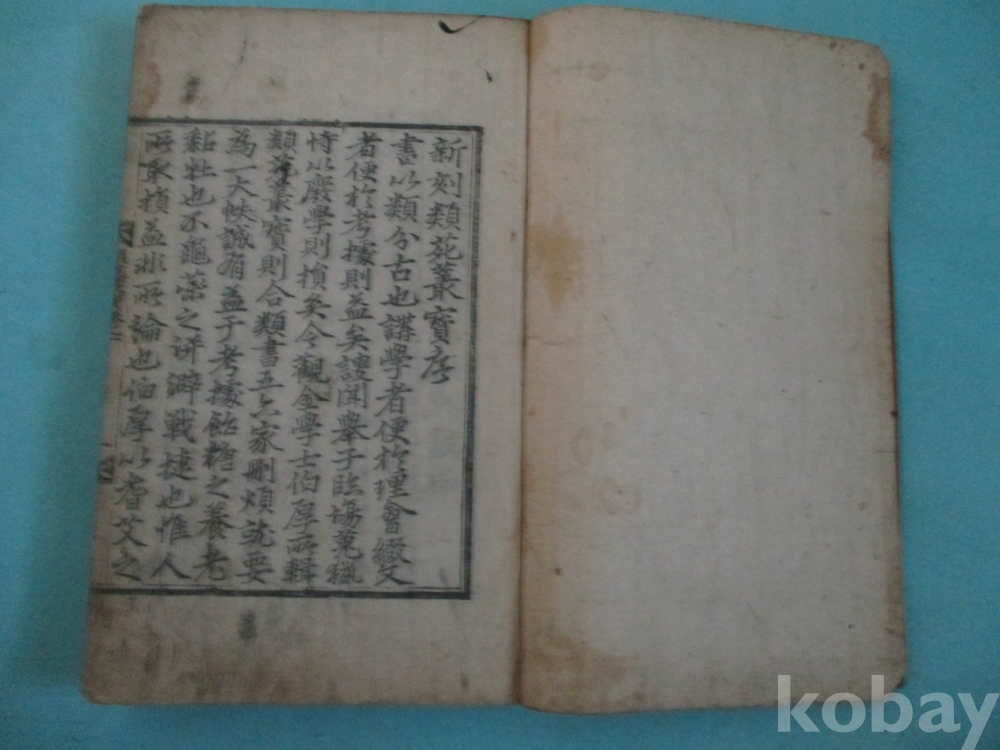 新刻類苑叢寶序
書以類分古也講學者便於理會綴文
者便於考據則益矣謏聞擧子臨場蒐獵
恃以廢學則損矣今觀金學士伯厚所輯
類苑叢寶則合類書五六家刪煩就要
爲一大帙誠有益于考據飴糖之養老
黏牡也不龜藥之洴澼戰捷也惟人
所取損益非所論也伯厚以耆艾之
kobay